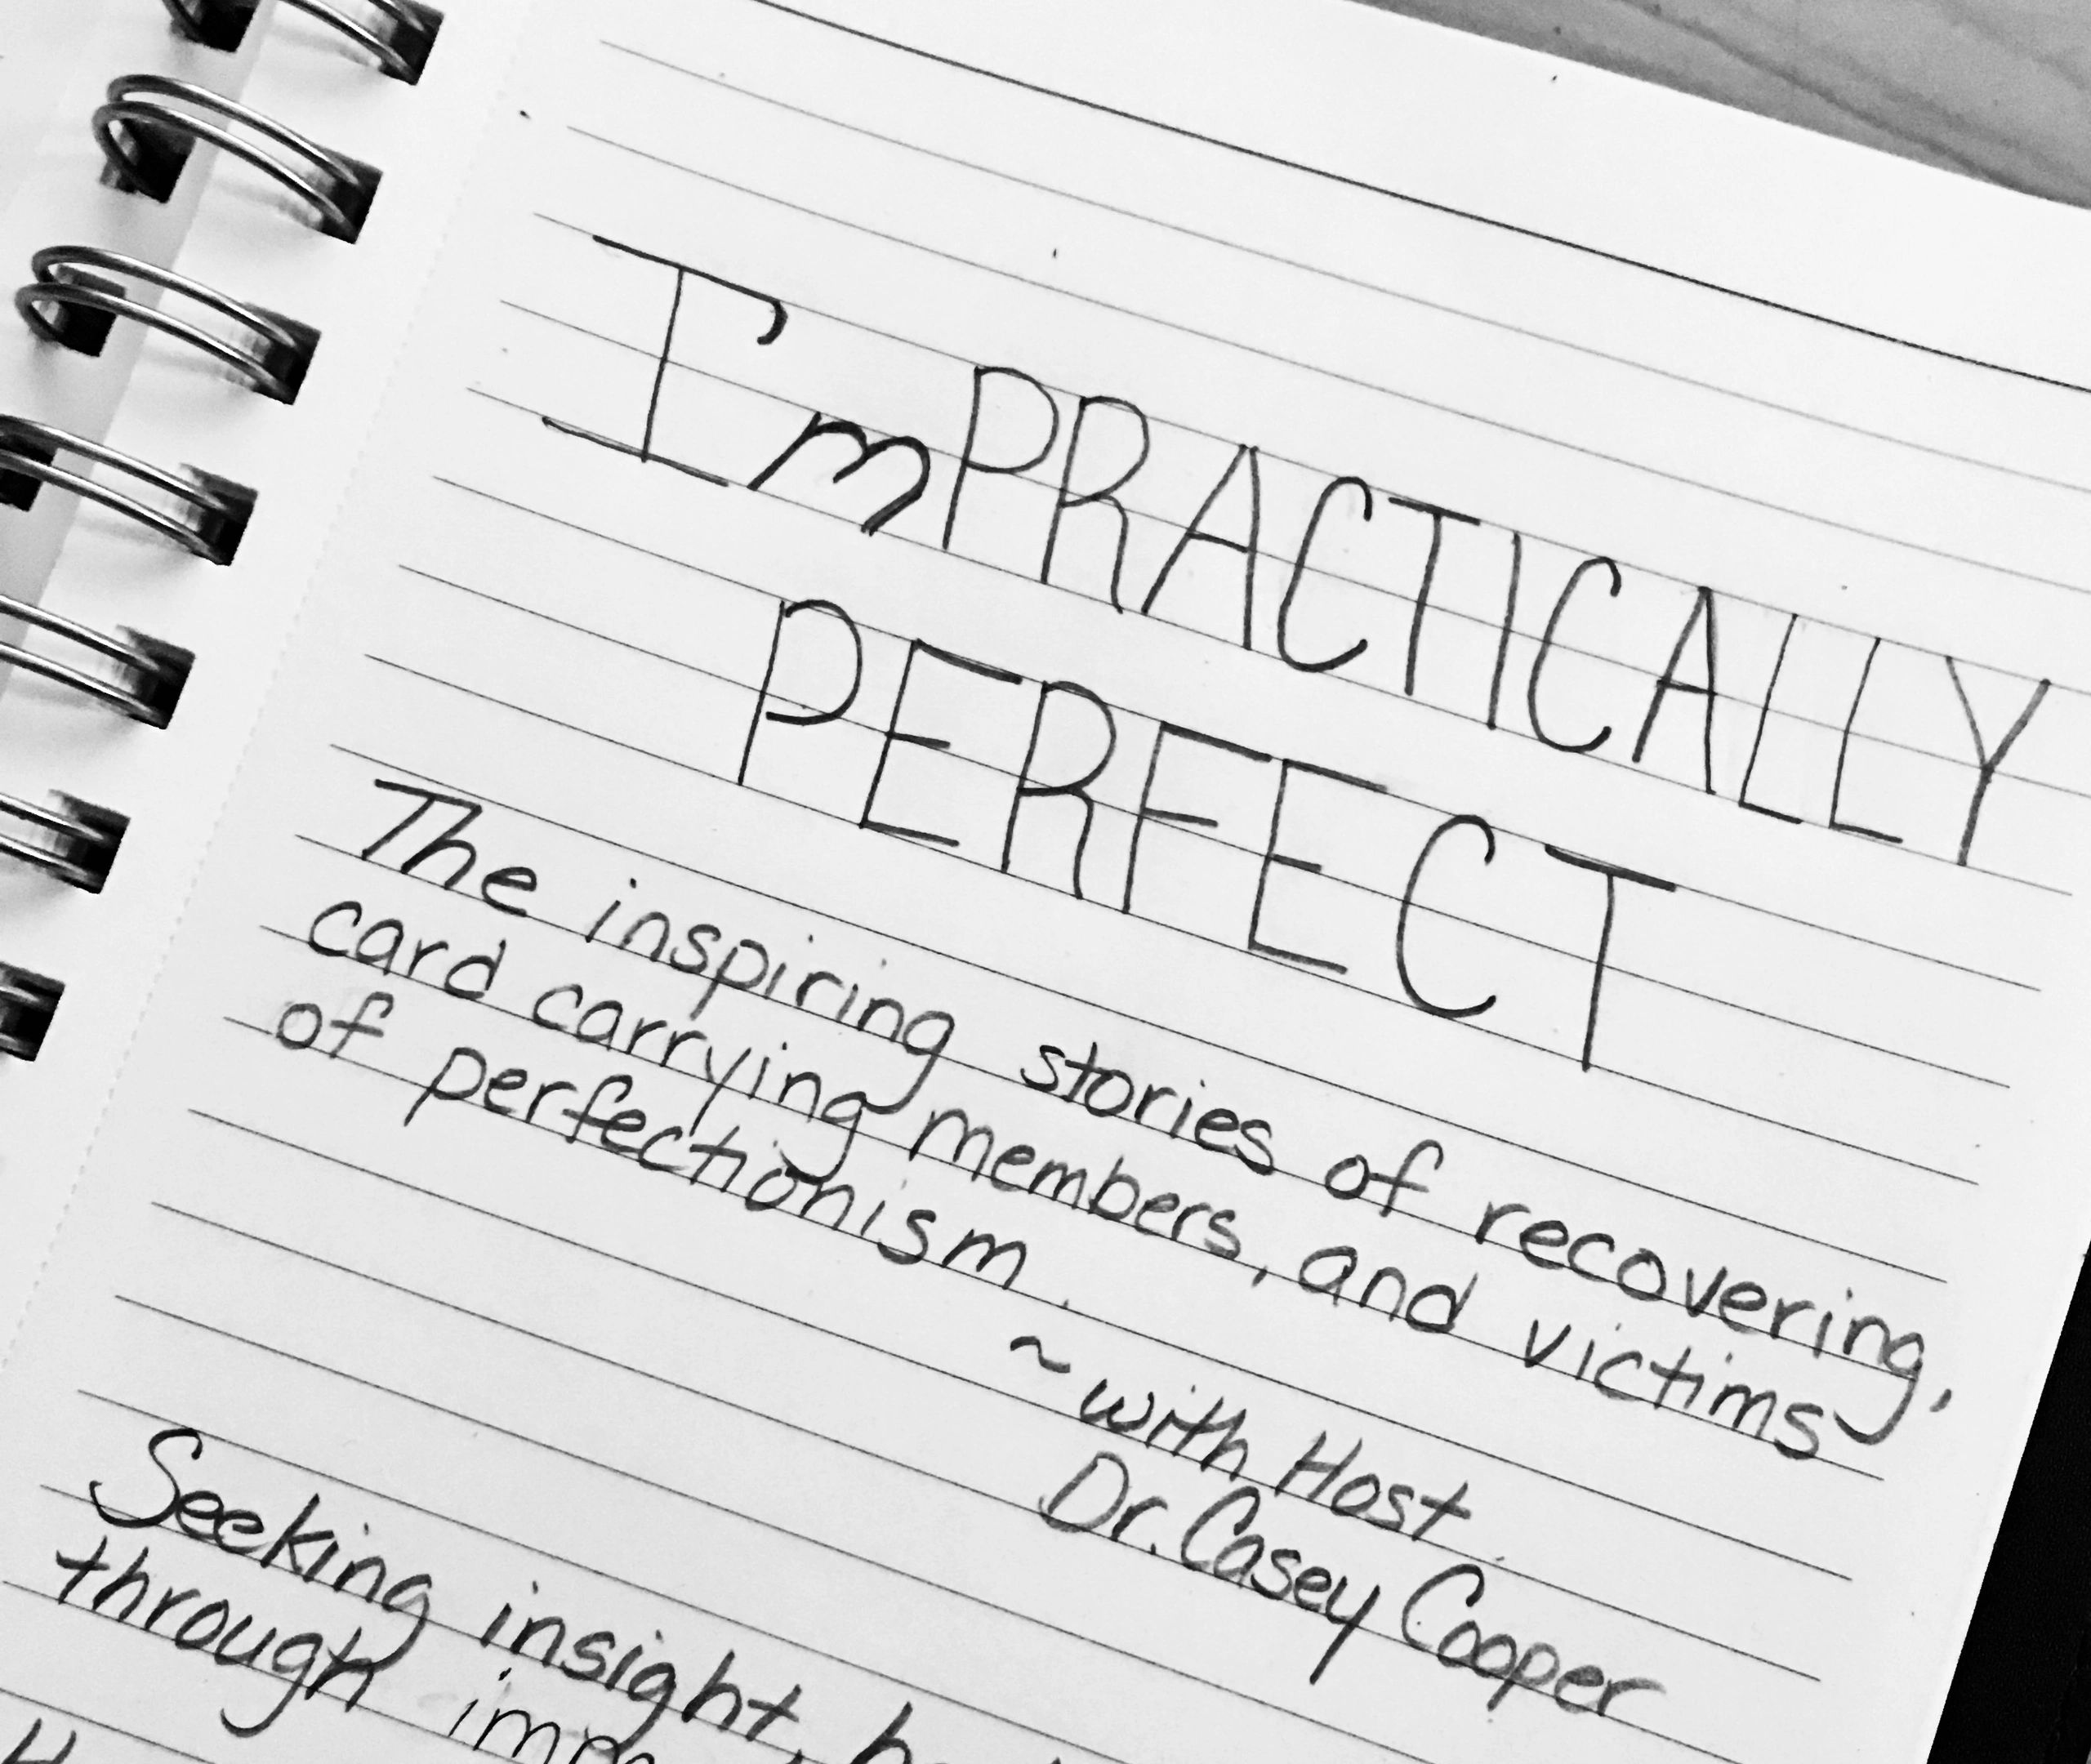 I'mPRACTICALLY
PERFECT
The inspiring stories of recovering,
card carrying members, and victims
of perfectionism.
~with Host
Dr. Casey Cooper
Seeking insight,
through